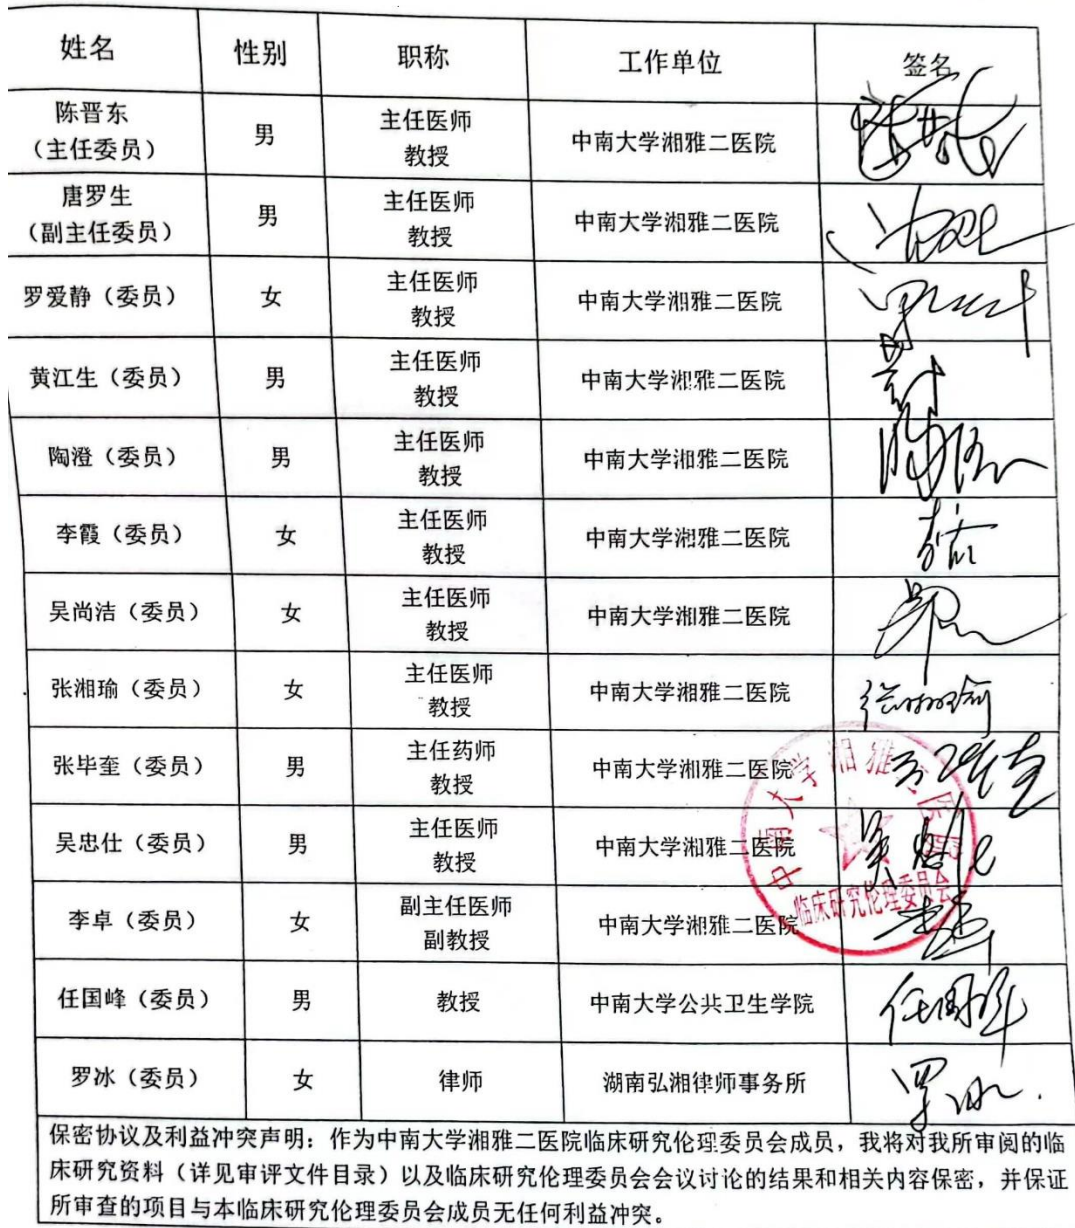 姓名 性别 职称 工作单位 签名
陈晋东
（主任委员） 男 主任医师
教授 中南大学湘雅二医院
唐罗生
（副主任委员） 男 主任医师
教授 中南大学湘雅二医院
罗爱静（委员） 女 主任医师
教授 中南大学湘雅二医院
黄江生（委员） 男 主任医师
教授 中南大学湘雅二医院
陶澄（委员） 男 主任医师
教授 中南大学湘雅二医院
李霞（委员） 女 主任医师
教授 中南大学湘雅二医院
吴尚洁（委员） 女 主任医师
教授 中南大学湘雅二医院
张湘瑜（委员） 女 主任医师
教授 中南大学湘雅二医院 张湘瑜
张毕奎（委员） 男 主任药师
教授 中南大学湘雅二医院
吴忠仕（委员） 男 主任医师
教授 中南大学湘雅二医院
李卓（委员） 女 副主任医师
副教授 中南大学湘雅二医院
中南大学湘雅二医院
临床研究伦理委员会
任国峰（委员） 男 教授 中南大学公共卫生学院 任国峰
罗冰（委员） 女 律师 湖南弘湘律师事务所 罗冰
保密协议及利益冲突声明：作为中南大学湘雅二医院临床研究伦理委员会成员，我将对我所审阅的临
床研究资料（详见审评文件目录）以及临床研究伦理委员会会议讨论的结果和相关内容保密，并保证
所审查的项目与本临床研究伦理委员会成员无任何利益冲突。